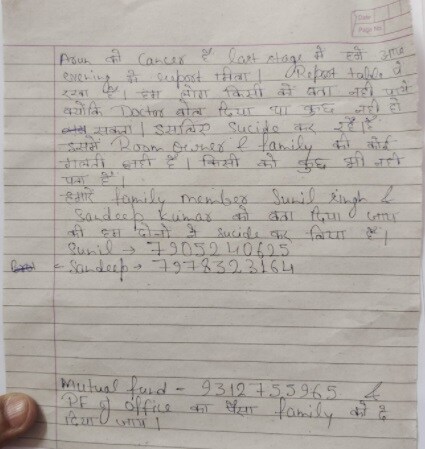 Date
Page No.
Arun को Cancer है last stage में हमे आज
evening में report मिला। Report table पे
रखा है। हम लोग किसी को बता नहीं पाये
क्योंकि Doctor बोल दिया था कुछ नहीं हो
सकता। इसलिए Sucide कर रहे हैं
इसमें Room owner & family की कोई
गलती नहीं है। किसी को कुछ भी नहीं
पता है।
हमारे family member Sunil Singh &
Sandeep Kumar को बता दिया जाय
की हम दोनों ने sucide कर लिया है।
Sunil → 7905240625
Sandeep → 7978323164
Mutual fund - 9312755965 &
PF of office का पैसा family को दे
दिया जाय।